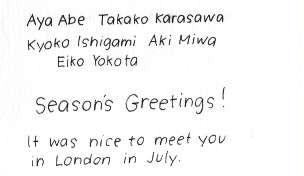 Aya Abe Takako Karasawa
Kyoko Ishigami Aki Miwa
Eiko Yokota
Season's Greetings!
It was nice to meet you
in London in July.